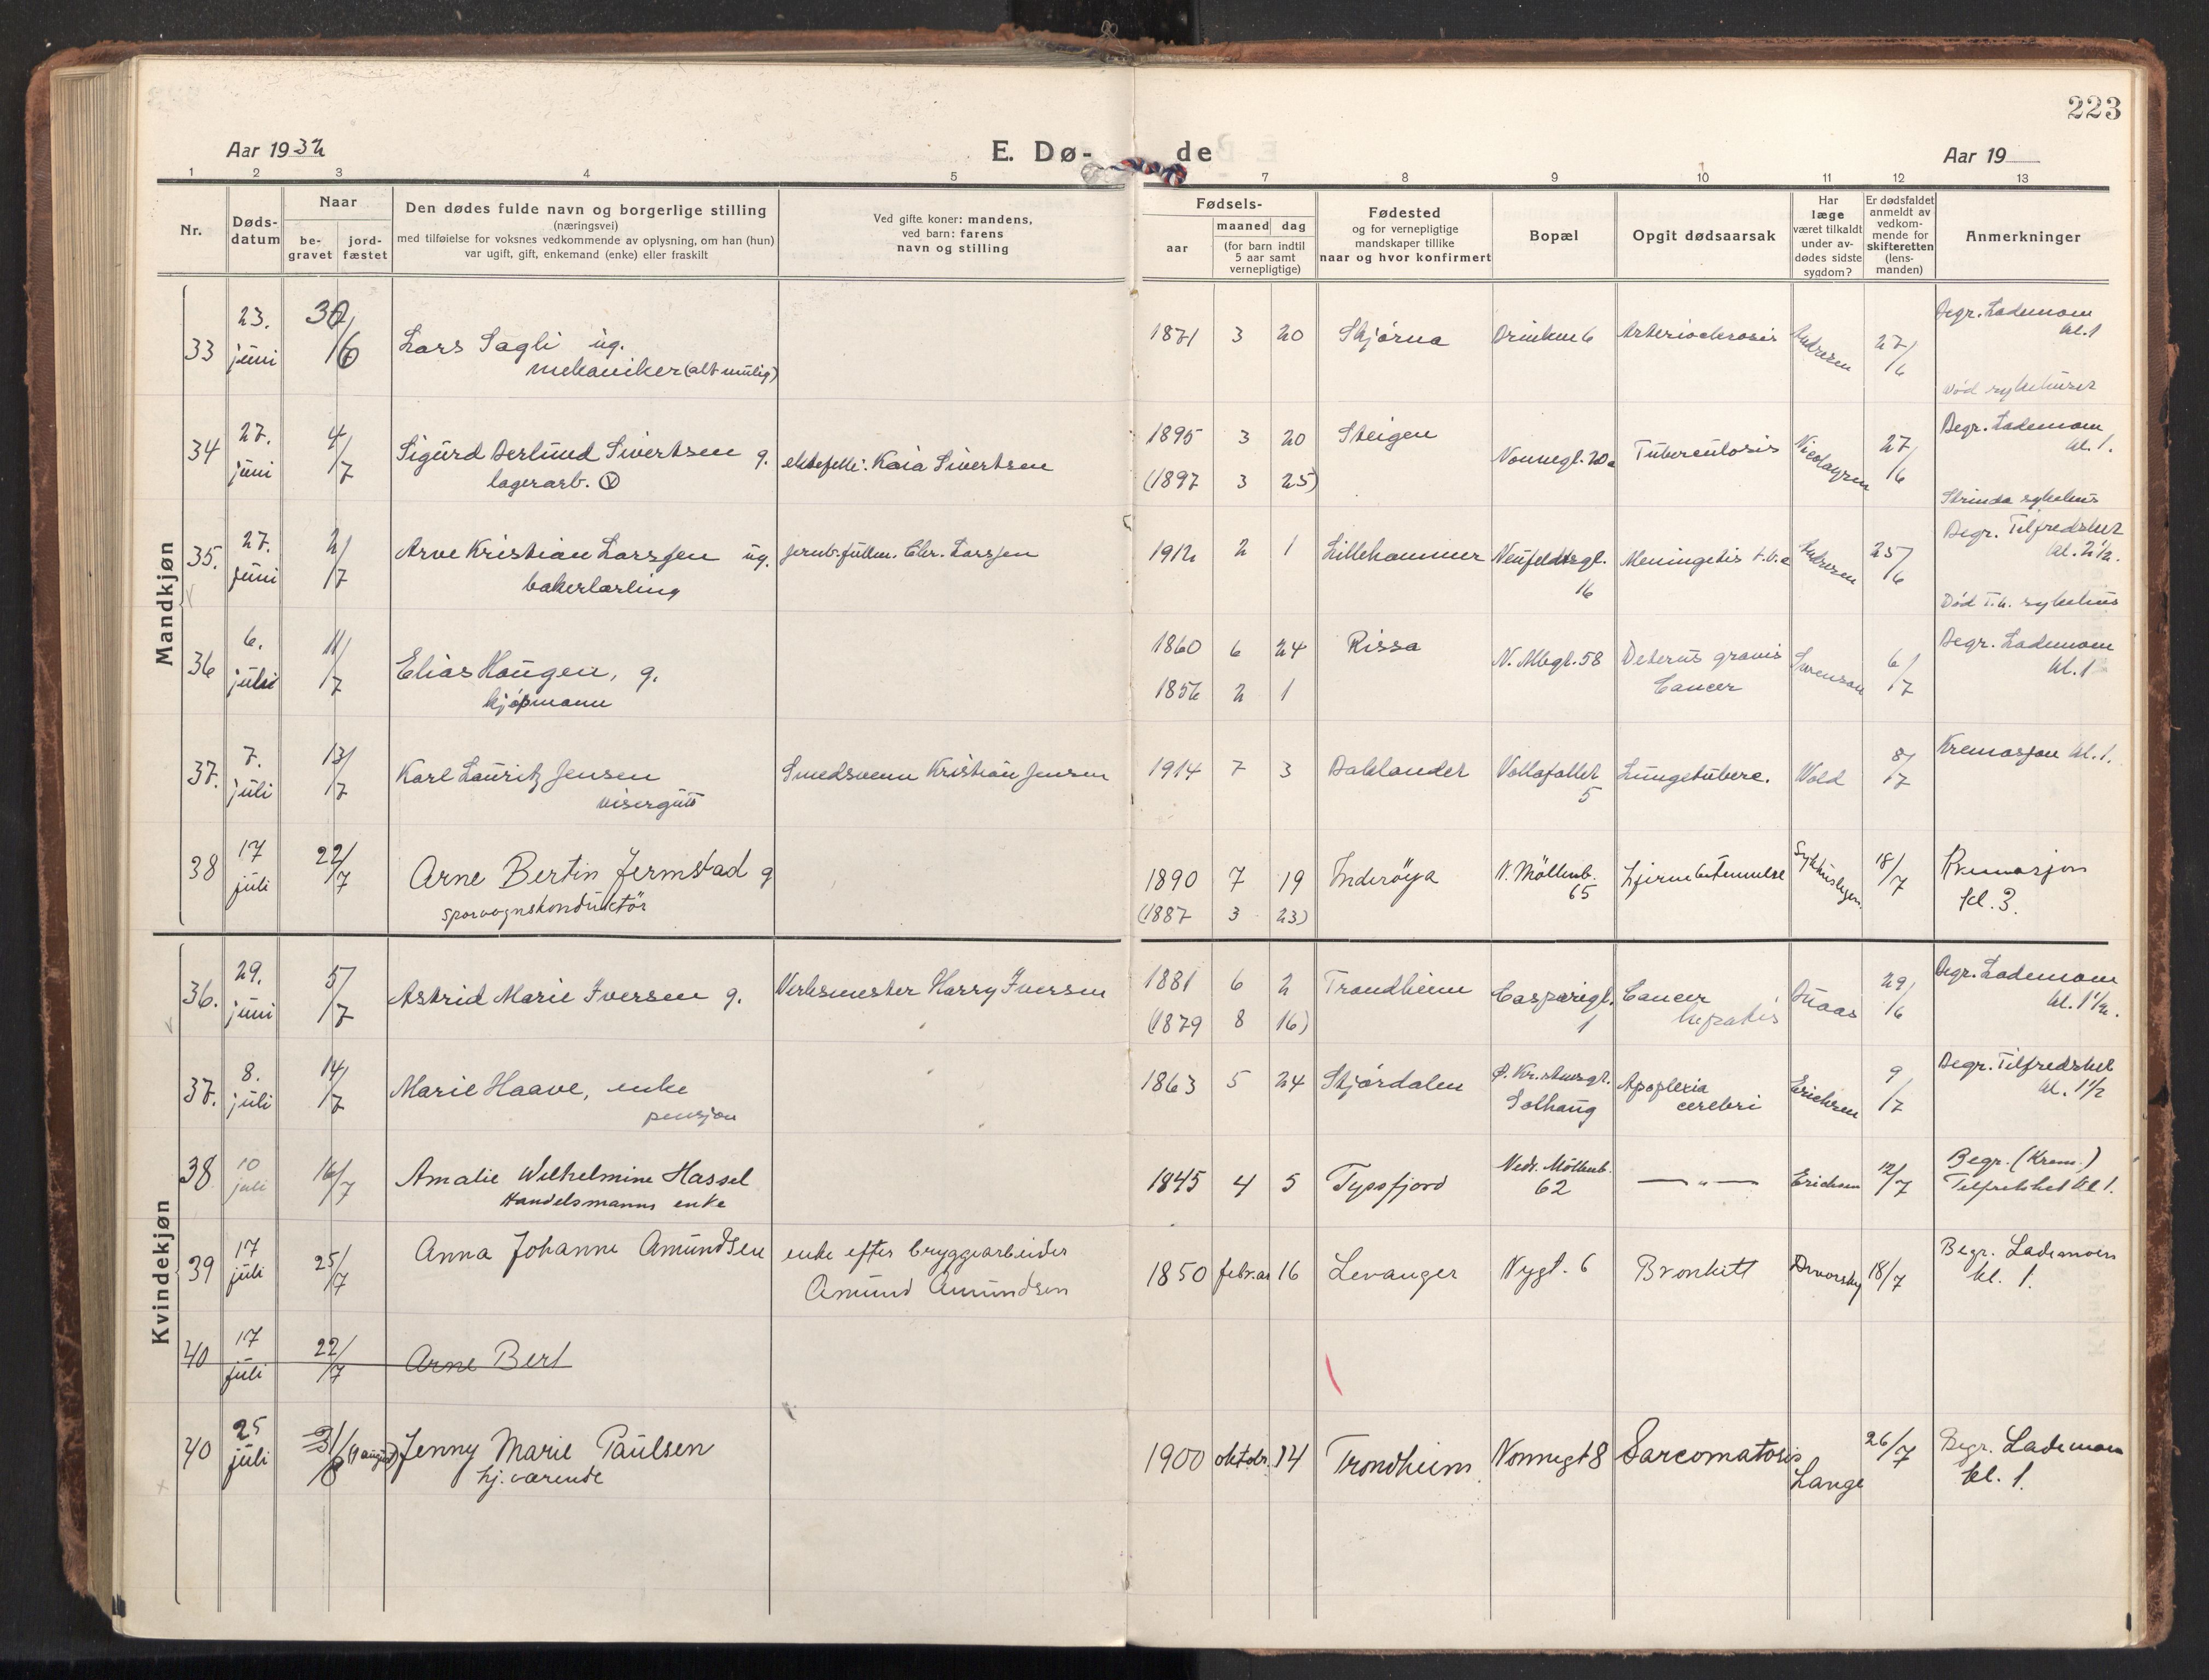 223
Aar 1932
E. Dø-
de
Aar 19
1 2 3 4 5 7 8 9 10 11 12 13
Nr.
Døds-
datum
Naar
be-
gravet
jord-
fæstet
Den dødes fulde navn og borgerlige stilling
(næringsvei)
med tilføielse for voksnes vedkommende av oplysning, om han (hun)
var ugift, gift, enkemand (enke) eller fraskilt
Ved gifte koner: mandens,
ved barn: farens
navn og stilling
Fødsels-
aar
maaned dag
(for barn indtil
5 aar samt
vernepligtige)
Fødested
og for vernepligtige
mandskaper tillike
naar og hvor konfirmert
Bopæl
Opgit dødsaarsak
Har
læge
været tilkaldt
under av-
dødes sidste
sygdom?
Er dødsfaldet
anmeldt av
vedkom-
mende for
skifteretten
(lens-
manden)
Anmerkninger
Mandkjøn
33 23. juni Lars Sagli ug. 1871 3 20 Arteriosclerosis Andresen 27/6 Begr. Lademoen
mekaniker (alt mulig) kl. 1
Død sykehuset
34 27. juni 4/7 Sigurd Berlund Sivertsen g. ektefelle: Kaia Sivertsen 1895 3 20 Steigen Nonnegt. 20a Tuberculosis Nicolaysen 27/6 Begr. Lademoen
lagerarb. (1897 3 25) kl. 1.
Strinda sykehus
35. 27. juni 2/7 Arve Kristian Larssen ug. jernb.fullm. Chr. Larssen 1912 2 1 Lillehammer Neufeldtsgt. Meningitis t.b.c Andresen 25/6 Begr. Tilfredshet
bakerlærling 16 kl. 2½.
Død T.h. sykehus
36 6. juli 11/7 Elias Haugen, g. 1860 6 24 Rissa N. Mbgt. 58 gravis Sørensen 6/7 Begr. Lademoen
kjøpmann 1856 2 1 Cancer kl. 1
37. 7. juli 13/7 Karl Lauritz Jensen Smedsvenn Kristian Jensen 1914 7 3 Vollafallet Lungetuberc. Wold 8/7 Kremasjon kl. 1.
visergutt 5
38 17 juli 22/7 Arne Bertin Jermstad g 1890 7 19 Inderöya N. Möllenb. Hjernebetennelse 18/7 Kremasjon
sporvognskonduktör (1887 3 23) 65 kl. 3.
Kvindekjøn
36. 29. juni 5/7 Astrid Marie Iversen g. Verksmester Harry Iversen 1881 6 2 Trondheim Casparigt. Cancer 29/6 Begr. Lademoen
(1879 8 16) 1 hepatis kl. 1½.
37. 8. juli 14/7 Marie Haave, enke 1863 5 24 Stjørdalen Apoplexia Erichsen 9/7 Begr. Tilfredshet
pensjon Solhaug cerebri kl. 1½
38 10 juli 16/7 Amalie Wilhelmine Hassel 1845 4 5 Tyssfjord Nedr. Möllenb. — „ — Erichsen 12/7 Begr. (Krem.)
Handelsmanns enke 62 Tilfredshet kl 1.
39 17 juli 25/7 Anna Johanne Amundsen enke efter bryggearbeider 1850 februar 16 Levanger Nygt. 6 Bronkitt 18/7 Begr. Lademoen
Amund Amundsen kl. 1.
40 17 juli 22/7 Arne Bert
40 25 juli (1 august) Jenny Marie Paulsen 1900 oktobr. 14 Trondheim Nonnegt 8 Sarcomatosis Lange 26/7 Begr. Lademoen
hj. værende kl. 1.